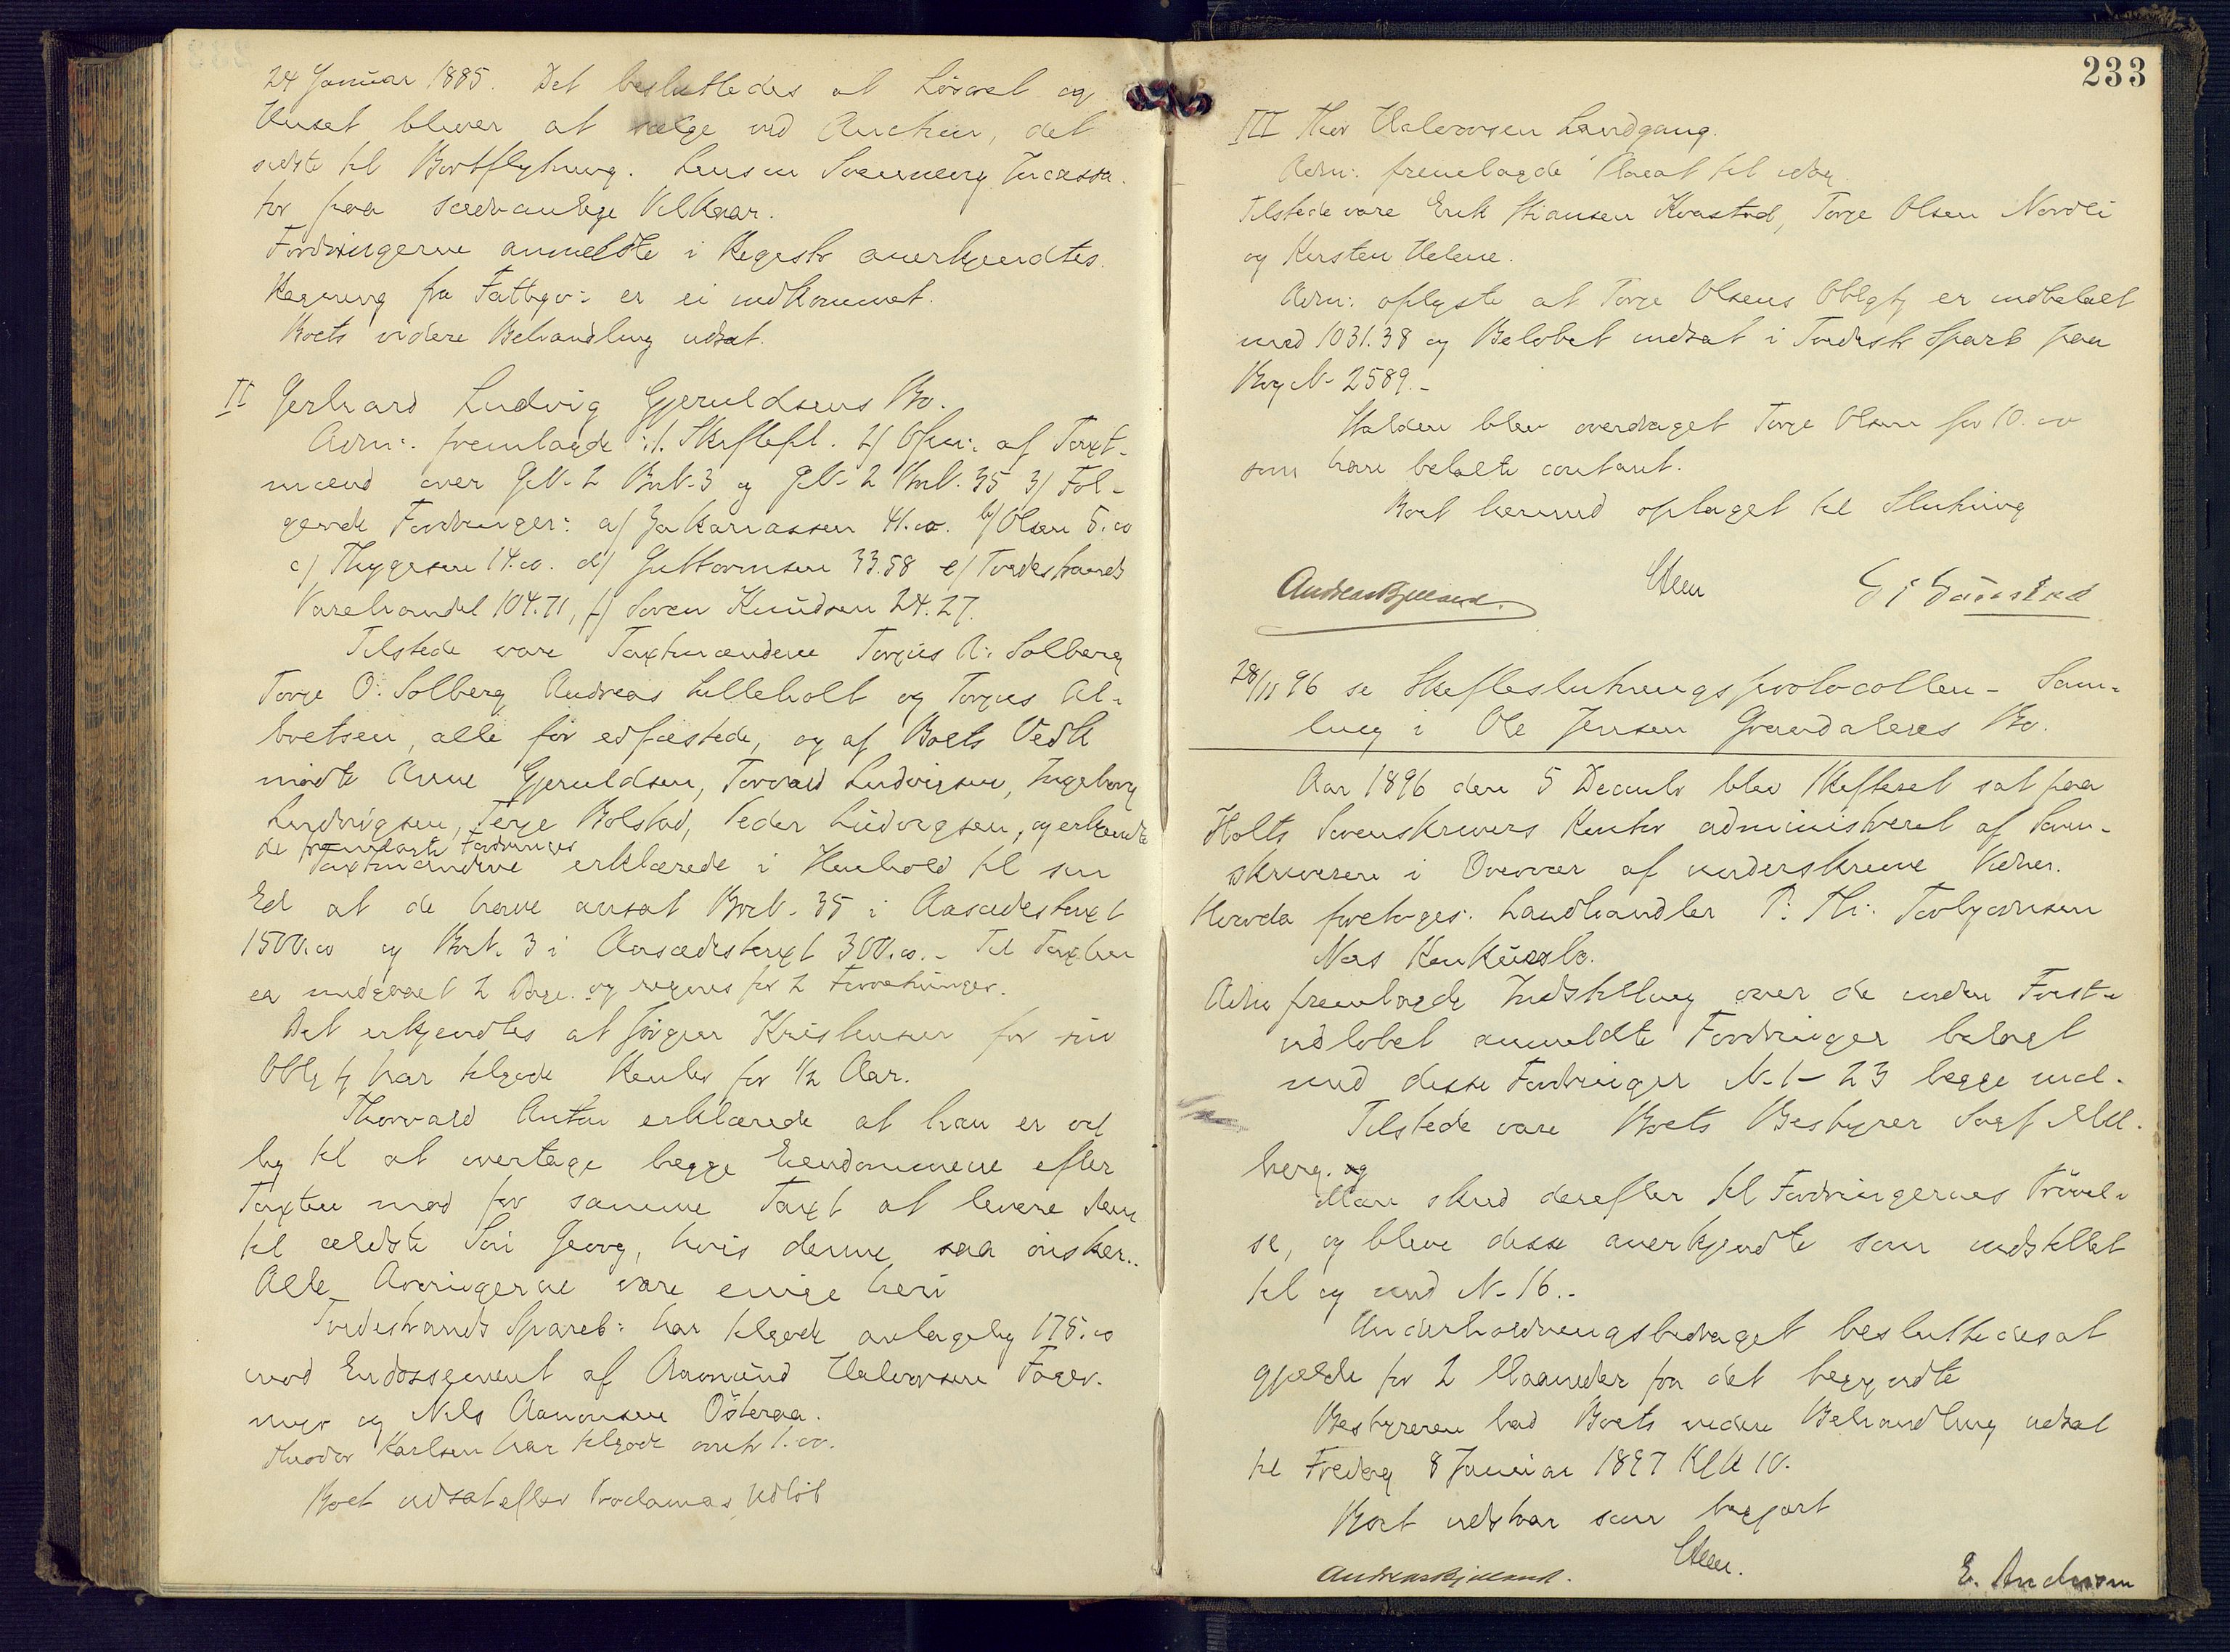 24 Januar 1885. Det besluttedes at Lösöret og
Huset bliver at selge ved Auction, det
sidste til Bortflytning. Lensm Svenneng Incassa-
tor paa sædvanlige Vilkaar.
Fordringerne anmeldte i Registr anerkjendtes.
Regning fra Fattigv: er ei indkommet.
Boets videre Behandling udsat.
II Gerhard Ludvig Gjeruldsens Bo.
Adm: fremlagde :1. Skiftefl. 2/ Opn: af Taxt-
mænd over GN- 2 BrN-3 og GN- 2 BrN. 35 3/ Føl-
gende Fordringer: a/ Zakariassen 41.00. b/ Olsen 5.00
c/ Thygesen 14.00. d/ Guttormsen 33.58 e/ Tvedestrands
Varehandel 104.71, f/ Søren Knudsen 24.27.
Tilstede vare Taxtmændene Torjus A: Solberg
Torje O: Solberg Andreas Lilleholt og Torjus Al-
bretsen, alle før edfæstede, og af Boets Vedk
mödte Anne Gjeruldsen, Torvald Ludvigsen, Ingeborg
Ludvigsen, Terje Bolstad, Peder Ludvigsen, og erkjendte
de fremlagte Fordringer
Taxtmændene erklærede i Henhold til sin
Ed at de have ansat BrN- 35 i Aasædestaxt
1500.00 og BrN. 3 i Aasædestaxt 300.00.- Til Taxten
er medgaaet 2 Dage. og regnes for 2 Forretninger.
Det erkjendtes at Jörgen Kristensen for sin
Oblg har tilgode Renter for 1/2 Aar.
Thorvald Anton erklærede at han er vil
lig til at overtage begge Eiendommene efter
Taxten mod for samme Taxt at levere dem
til ældste Sön Georg, hvis denne saa önsker..
Alle Arvingerne vare enige heri
Tvedestrands Spareb: har tilgode antagelig 175.00
mod Endossement af Aamund Halvorsen Fager-
myr og Nils Aanonsen Österaa.
Theodor Karlsen har tilgode 1.00.
Boet udsat efter Proclamas Udlöb
233
III Thor Halvorsen Landgang.
Adm: fremlagde Placat til idag
Tilstede vare Erik Stiansen Kvastad, Torje Olsen Nordli
og Kirsten Helene.
Adm: oplyste at Torje Olsens Oblg er indbetalt
med 1031.38 og Beløbet indsat i Tvedestr Spareb paa
Bog N- 2589.-
Stalden blev overdraget Torje Olsen for 10.00
som han betalte contant.
Boet hermed optaget til Slutning
Andreas Bjelland. Steen
28/11 96 se Skifteslutningsprotocollen - Sam-
ling i Ole Jensen Grændalens Bo.
Aar 1896 den 5 Decembr blev Skifteret sat paa
Holts Sorenskrivers Kontor administreret af Soren-
skriveren i Overvær af underskrevne Vidner.
Hvorda foretoges: Landhandler P: Th: Torbjørnsen
Næs Konkursbo.
Adm fremlagde Indstilling over de inden Frist-
udløbet anmeldte Fordringer bilagt
med disse Fordringer N-1- 23 begge incl.
Tilstede vare Boets Bestyrer Sagf Mal-
berg. og
Man skred derefter til Fordringernes Prövel-
se, og bleve disse anerkjendte som indstillet
til og med N- 16.-
Underholdningsbidraget besluttedes at
gjælde for 2 Maaneder fra det begyndte
Bestyreren bad Boets videre Behandling udsat
til Fredag 8 Januar 1897 Kl 10.
Boet udstaar som begjært
Andreas Bjelland. Steen. E. Andersen